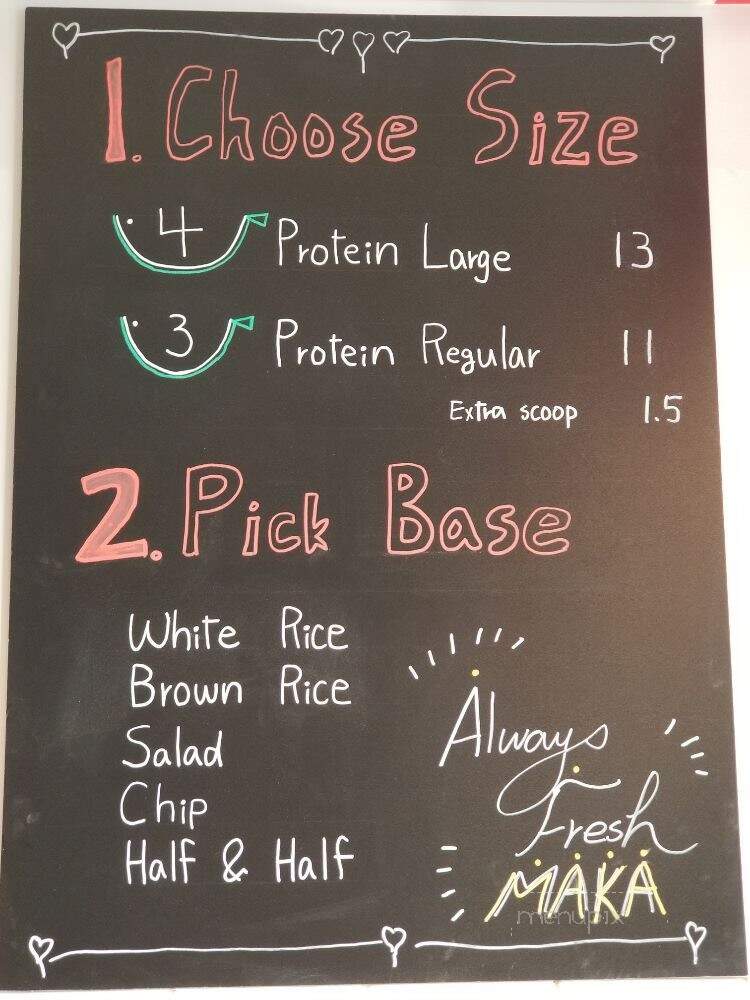 1. Choose Size
4 Protein Large 13
3 Protein Regular 11
Extra scoop 1.5
2. Pick Base
White Rice
Brown Rice
Salad
Chip
Half & Half
Always
Fresh
MAKA
menupix